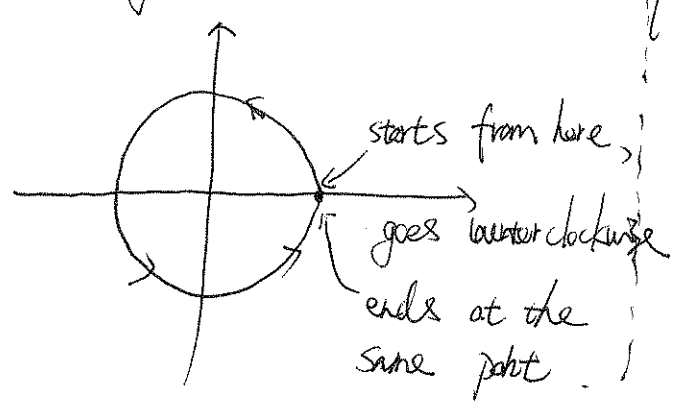 starts from here,
goes counterclockwise
ends at the
same point.